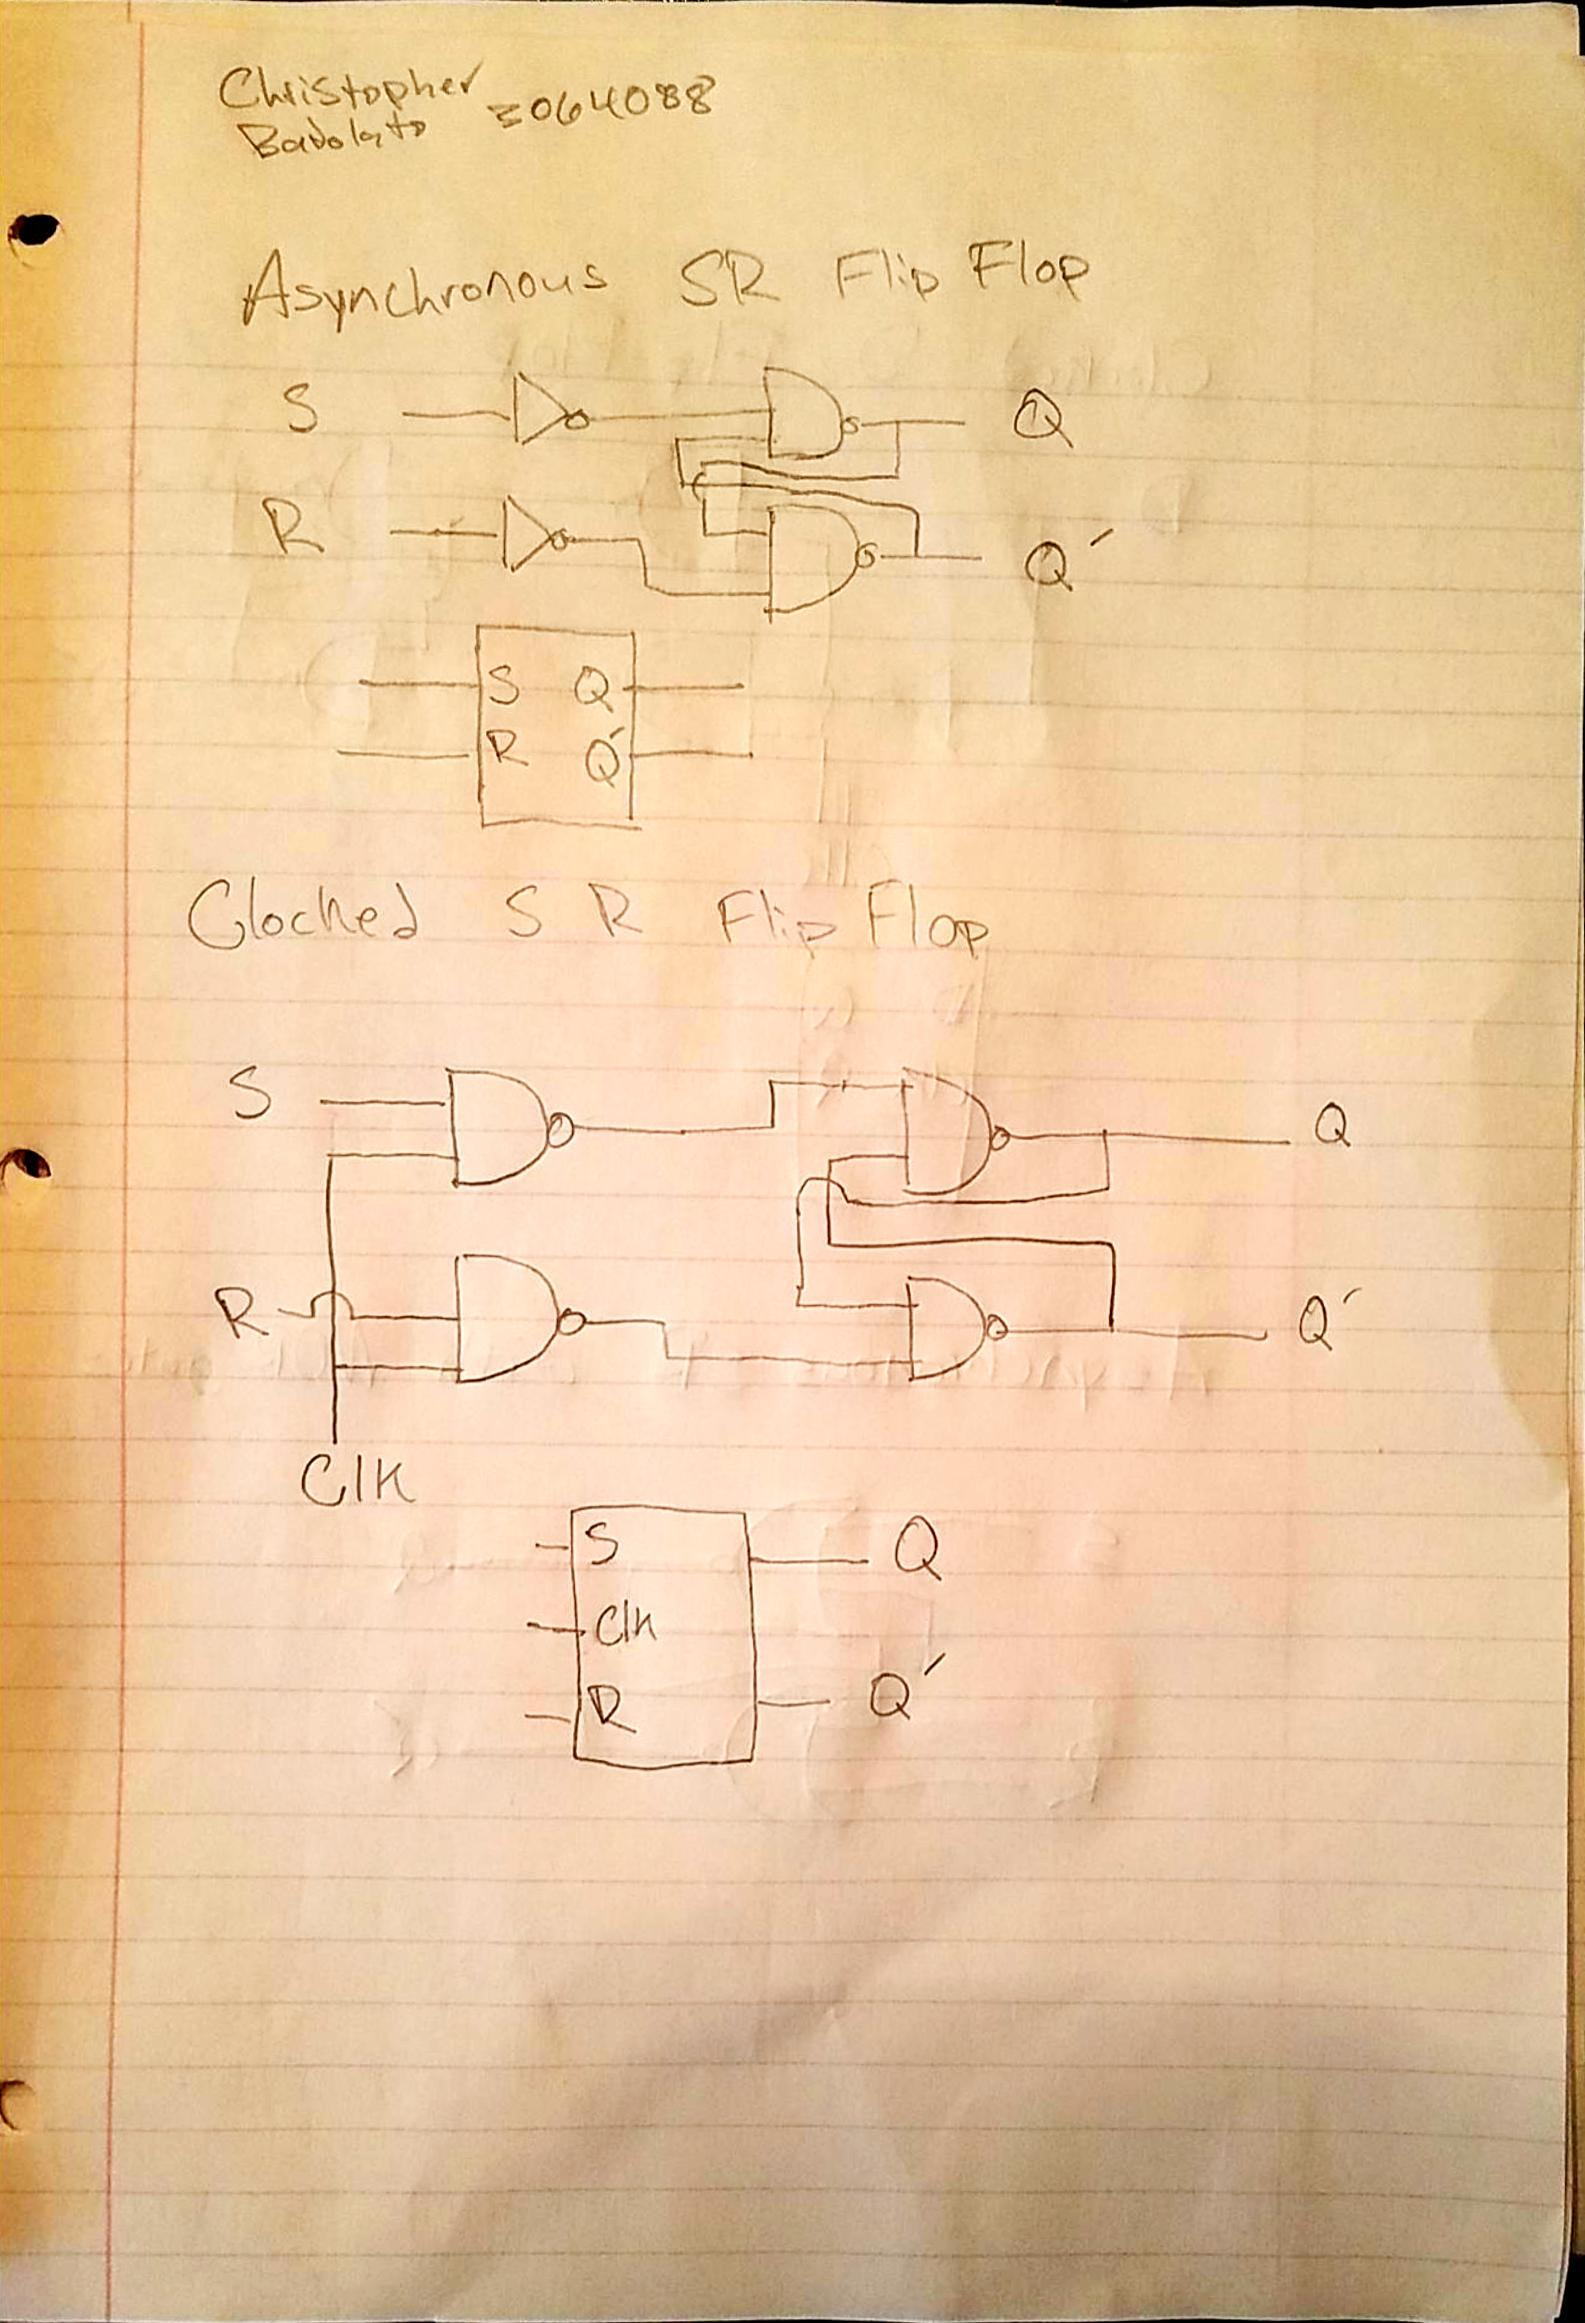 Christopher
Badolato 3064088
Asynchronous SR Flip Flop
S Q
R Q'
S Q
R Q'
Clocked SR Flip Flop
S Q
R Q'
Clk
S Q
Clk
R Q'